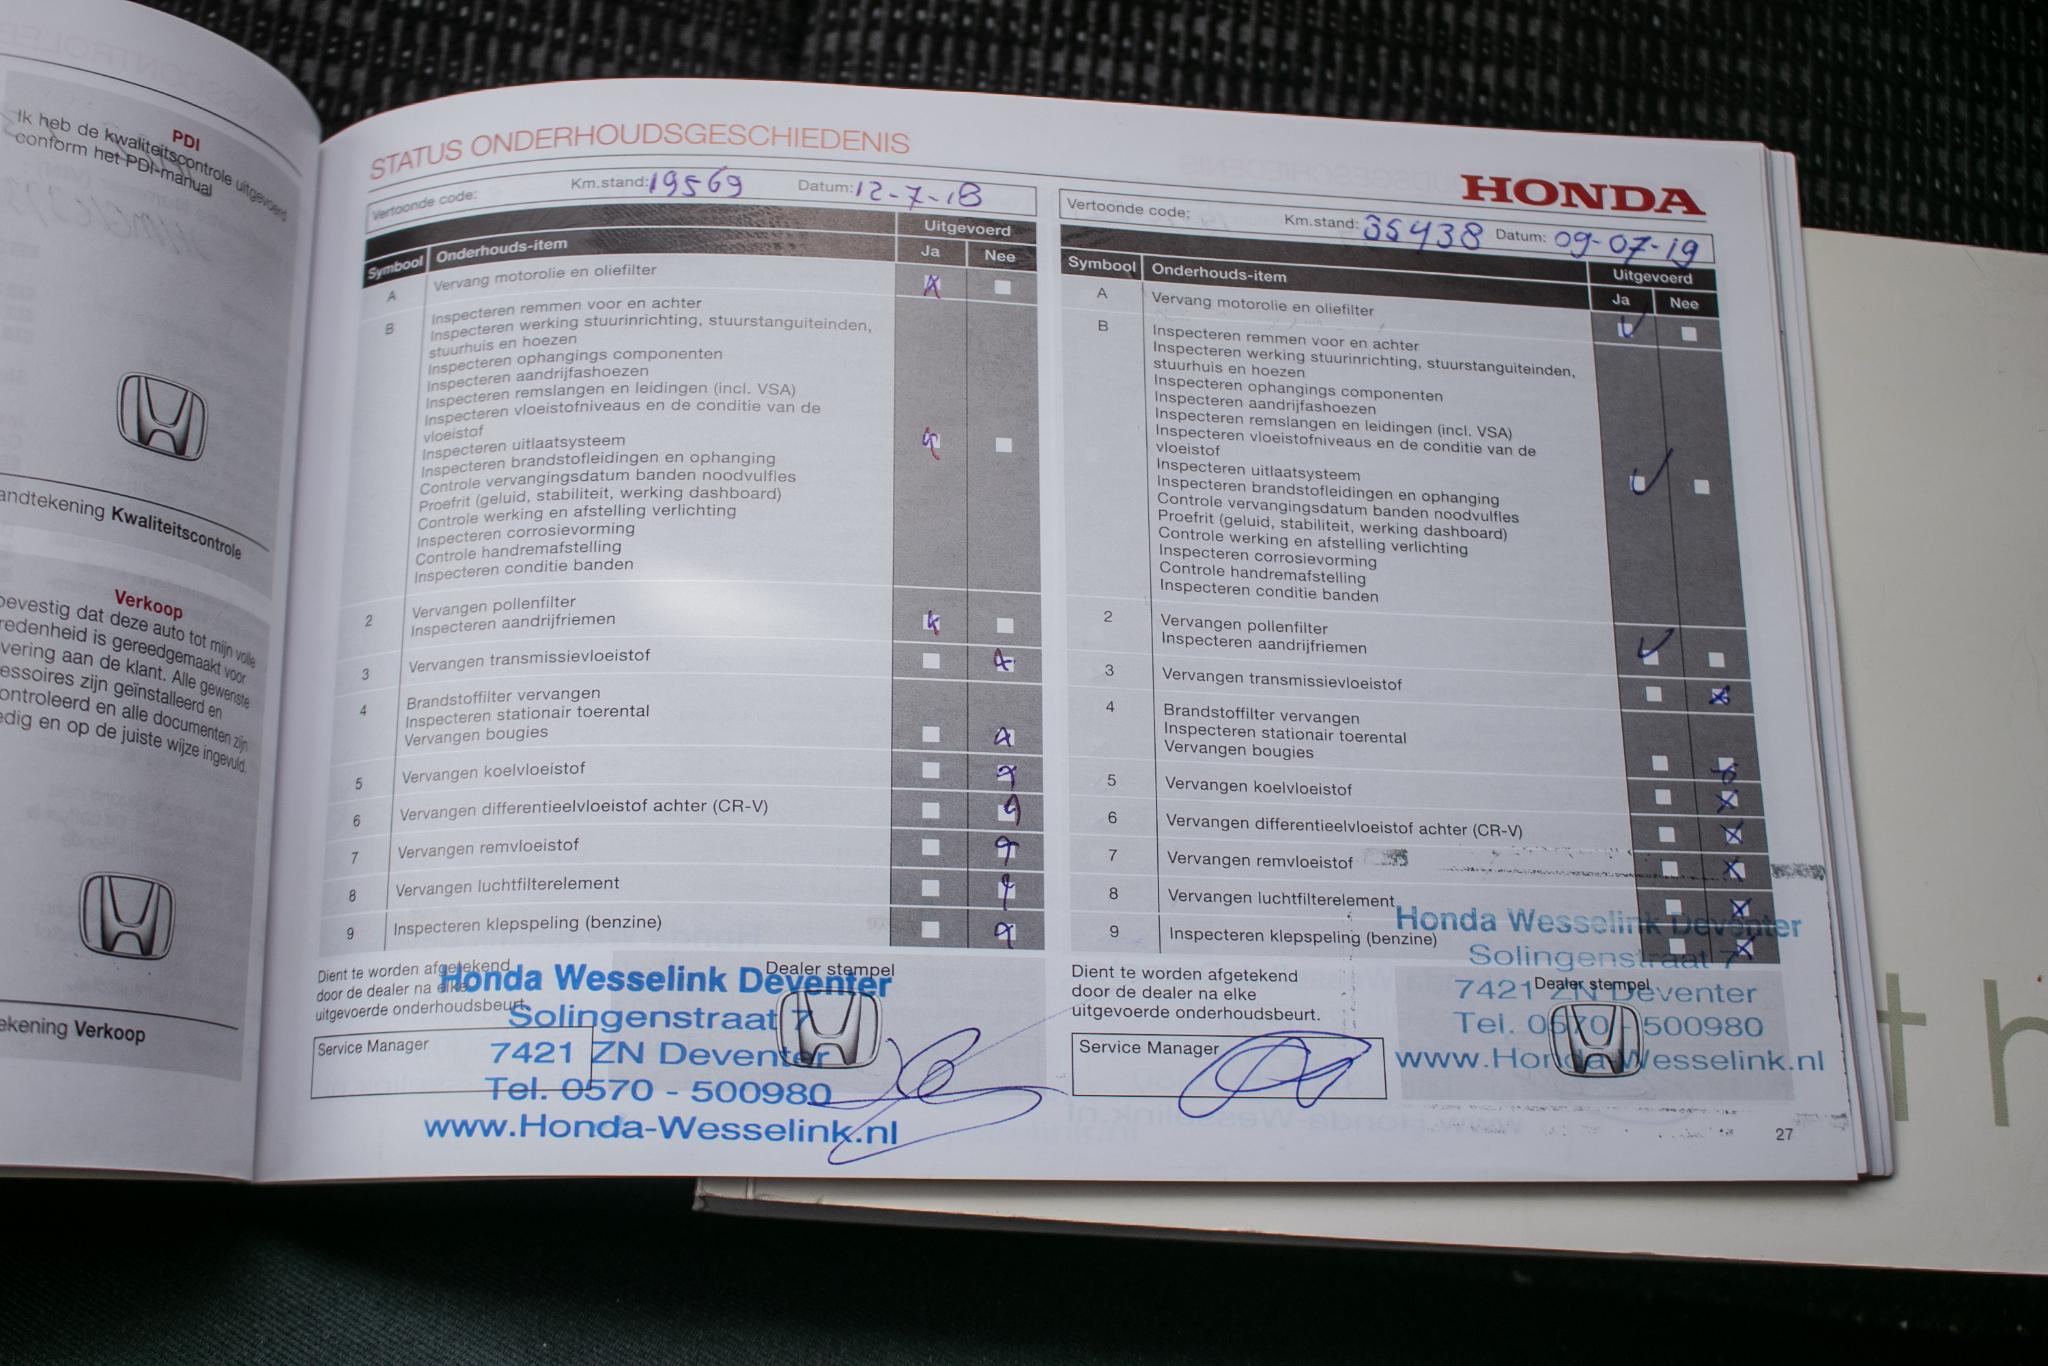 PDI
Ik heb de kwaliteitscontrole uitgevoerd
conform het PDI-manual
andtekening Kwaliteitscontrole
Verkoop
bevestig dat deze auto tot mijn volle
redenheid is gereedgemaakt voor
vering aan de klant. Alle gewenste
essoires zijn geïnstalleerd en
ontroleerd en alle documenten zijn
edig en op de juiste wijze ingevuld.
ekening Verkoop
STATUS ONDERHOUDSGESCHIEDENIS
Vertoonde code: Km.stand: 19569 Datum: 12-7-18
Symbool Onderhouds-item Uitgevoerd
Ja Nee
A Vervang motorolie en oliefilter
B Inspecteren remmen voor en achter
Inspecteren werking stuurinrichting, stuurstanguiteinden,
stuurhuis en hoezen
Inspecteren ophangings componenten
Inspecteren aandrijfashoezen
Inspecteren remslangen en leidingen (incl. VSA)
Inspecteren vloeistofniveaus en de conditie van de
vloeistof
Inspecteren uitlaatsysteem
Inspecteren brandstofleidingen en ophanging
Controle vervangingsdatum banden noodvulfles
Proefrit (geluid, stabiliteit, werking dashboard)
Controle werking en afstelling verlichting
Inspecteren corrosievorming
Controle handremafstelling
Inspecteren conditie banden
2 Vervangen pollenfilter
Inspecteren aandrijfriemen
3 Vervangen transmissievloeistof
4 Brandstoffilter vervangen
Inspecteren stationair toerental
Vervangen bougies
5 Vervangen koelvloeistof
6 Vervangen differentieelvloeistof achter (CR-V)
7 Vervangen remvloeistof
8 Vervangen luchtfilterelement
9 Inspecteren klepspeling (benzine)
Dient te worden afgetekend
door de dealer na elke
uitgevoerde onderhoudsbeurt.
Service Manager
Dealer stempel
Honda Wesselink Deventer
Solingenstraat 7
7421 ZN Deventer
Tel. 0570 - 500980
www.Honda-Wesselink.nl
HONDA
Vertoonde code: Km.stand: 35438 Datum: 09-07-19
Symbool Onderhouds-item Uitgevoerd
Ja Nee
A Vervang motorolie en oliefilter
B Inspecteren remmen voor en achter
Inspecteren werking stuurinrichting, stuurstanguiteinden,
stuurhuis en hoezen
Inspecteren ophangings componenten
Inspecteren aandrijfashoezen
Inspecteren remslangen en leidingen (incl. VSA)
Inspecteren vloeistofniveaus en de conditie van de
vloeistof
Inspecteren uitlaatsysteem
Inspecteren brandstofleidingen en ophanging
Controle vervangingsdatum banden noodvulfles
Proefrit (geluid, stabiliteit, werking dashboard)
Controle werking en afstelling verlichting
Inspecteren corrosievorming
Controle handremafstelling
Inspecteren conditie banden
2 Vervangen pollenfilter
Inspecteren aandrijfriemen
3 Vervangen transmissievloeistof
4 Brandstoffilter vervangen
Inspecteren stationair toerental
Vervangen bougies
5 Vervangen koelvloeistof
6 Vervangen differentieelvloeistof achter (CR-V)
7 Vervangen remvloeistof
8 Vervangen luchtfilterelement
9 Inspecteren klepspeling (benzine)
Dient te worden afgetekend
door de dealer na elke
uitgevoerde onderhoudsbeurt.
Service Manager
Dealer stempel
Honda Wesselink Deventer
Solingenstraat 7
7421 ZN Deventer
Tel. 0570 - 500980
www.Honda-Wesselink.nl
27
th